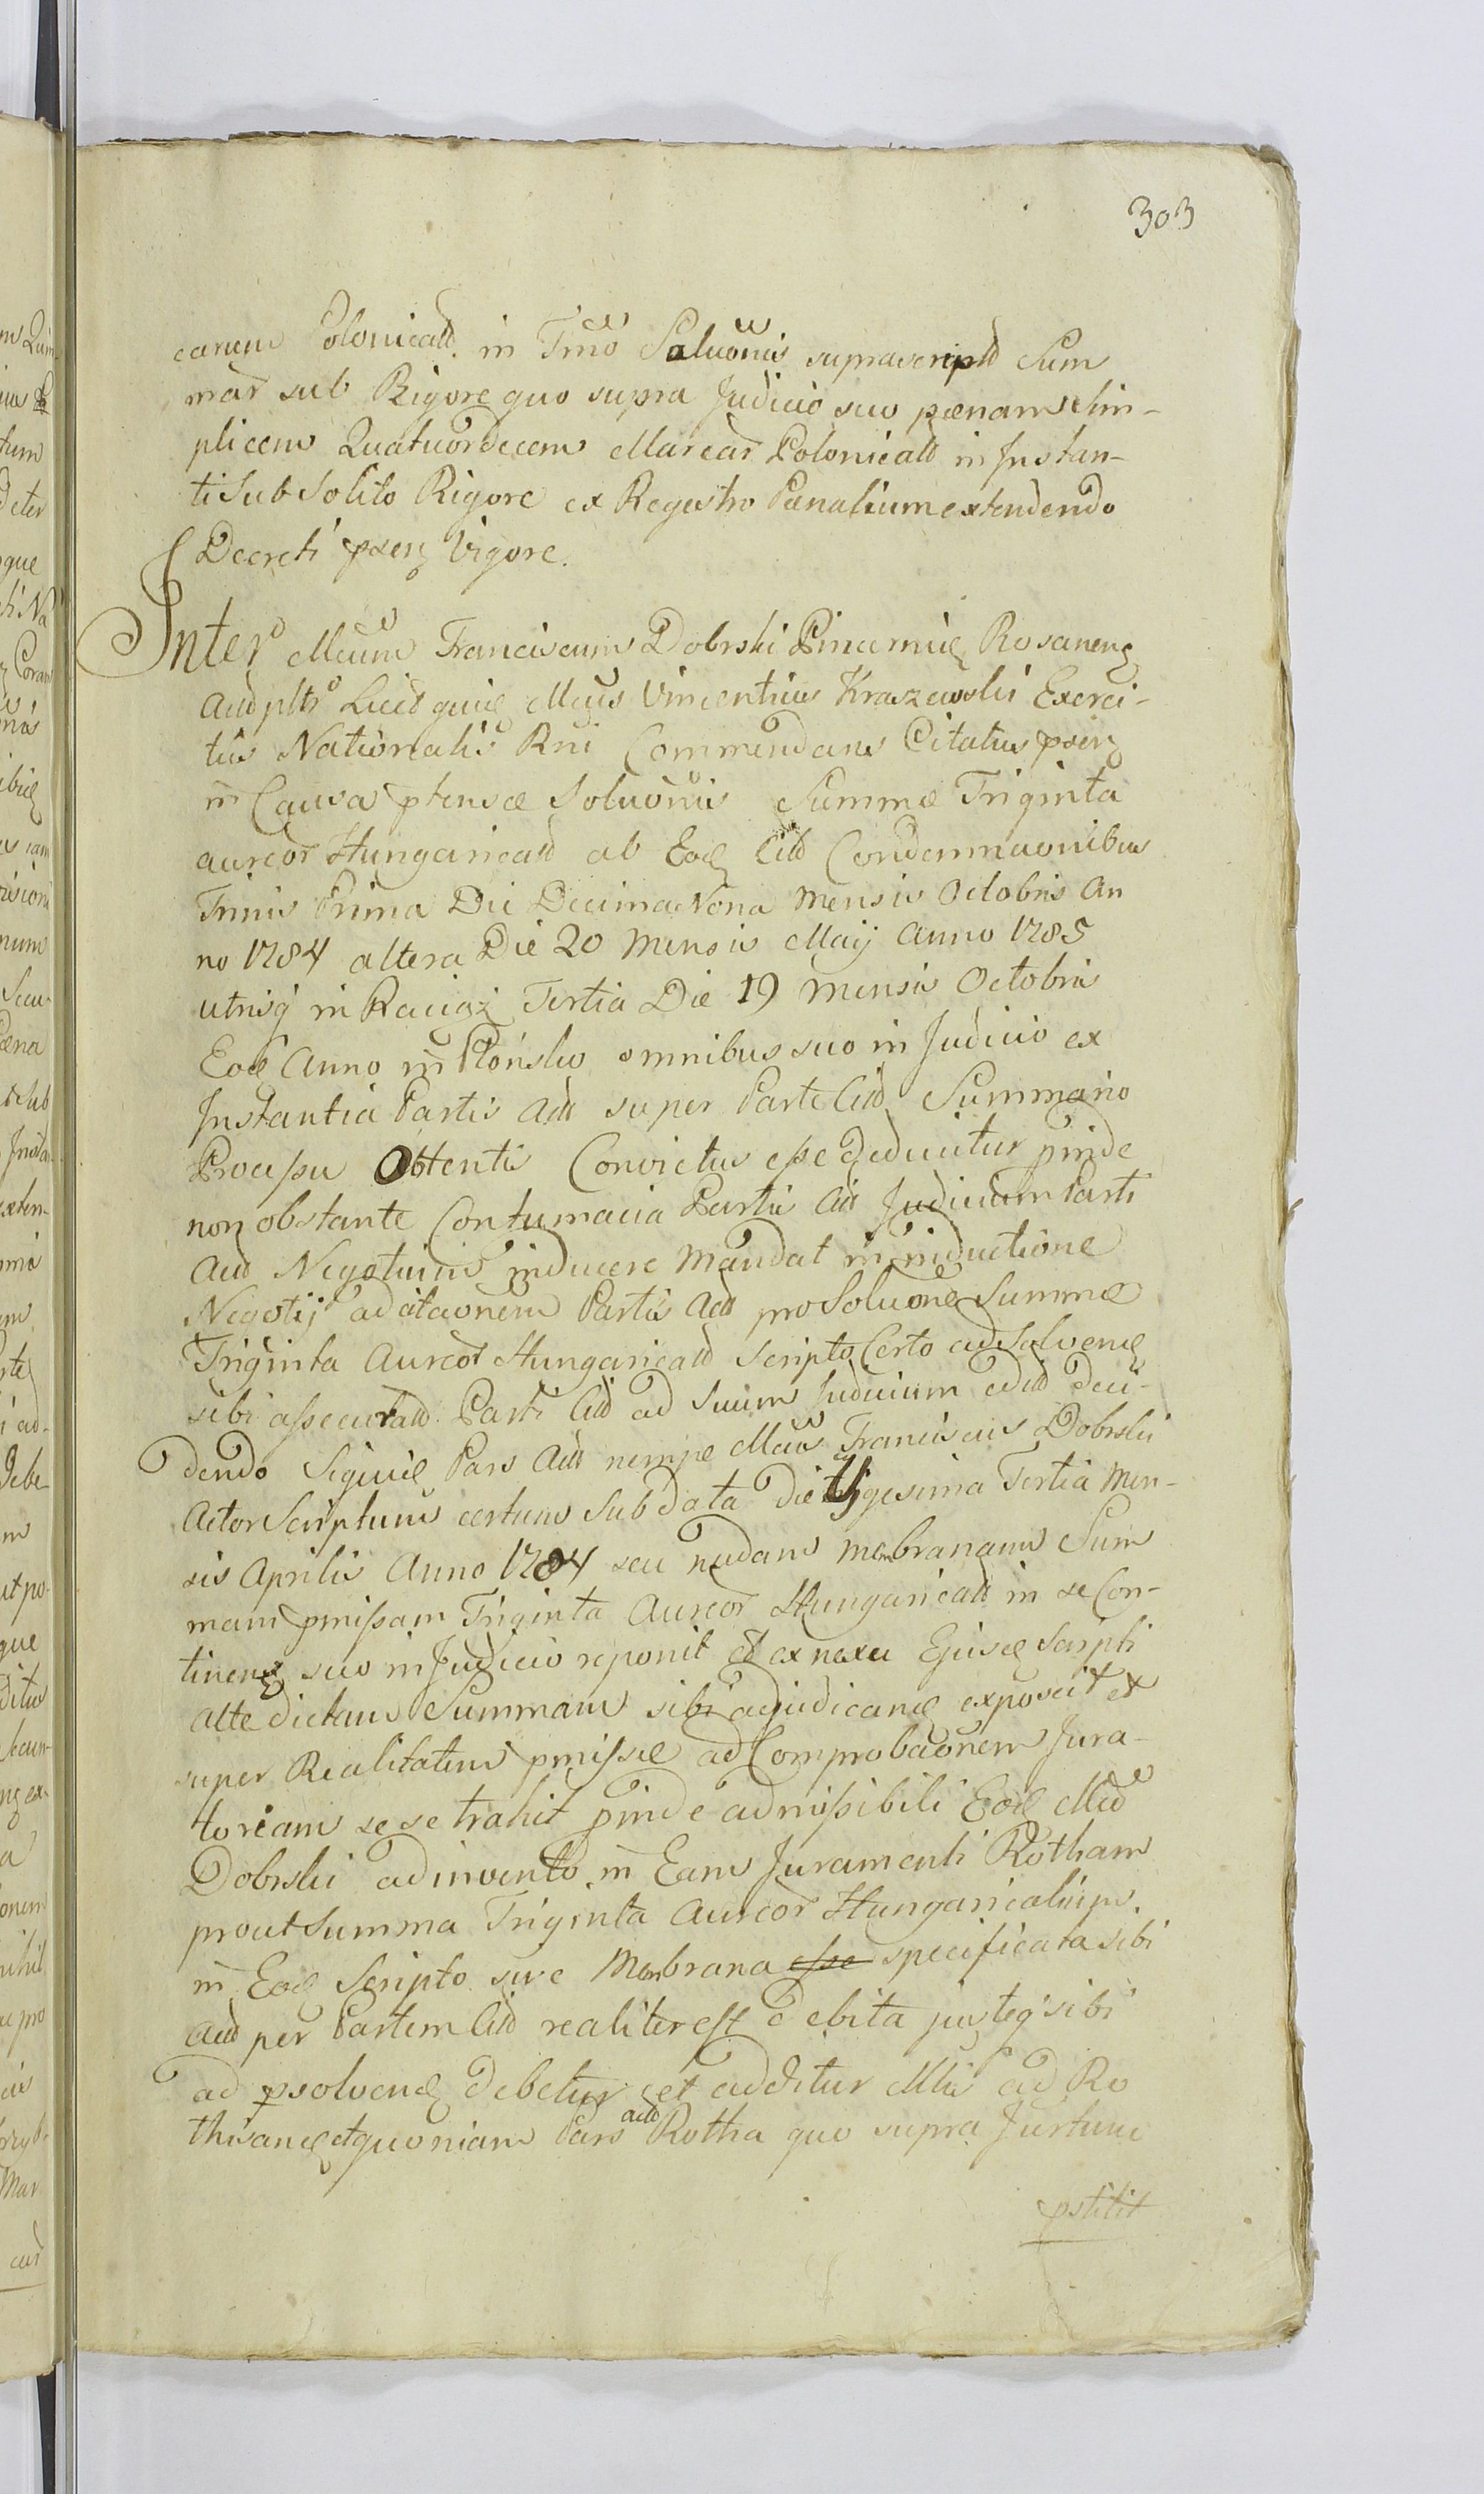 303
carum Polonicall in Tmo Saluonis suprascriptt Sum
mar sub Rigore quo supra Judicio suo pœnam Sim-
plicem Quatuordecem Marcar Polonicall in Instan-
ti Sub Solito Rigore ex Regestro Pœnalium extendendo
Decreti psen Vigore.
Inter Mcum Franciscum Dobrski Pincernid Rosanen
Act pltr Licet quid Mcus Vincentius Kraszewski Exerci-
tus Nationalis Rni Commendans Citatus psen
in Causa ptensæ Soluonis Summæ Triginta
aureor Hungaricall ab Eod Citt Condemnaonibus
Trinis Prima Die Decima Nona Mensis Octobris An
no 1784 altera Die 20 Mensis Maij Anno 1785
utrisq in Raciąż Tertia Die 19 Mensis Octobris
Eod Anno in Płońsko omnibus suo in Judicio ex
Instantia Partis Act super Parte Citt Summario
Processu Obtentis Convictus esse deducitur pinde
non obstante Contumacia Partis Citt Judicium Parti
Act Negotium inducere Mandat in inductione
Negotij ad citaonem Partis Act pro Soluone Summæ
Triginta Aureor Hungaricall Scripto Certo ad Solvend
sibi assecuratt Parti Citt ad Suum Judicium editt deci-
dendo Siquid Pars Act nempe Mcus Franciscus Dobrski
Actor Scriptum certum Sub data Die Vigesima Tertia Men-
sis Aprilis Anno 1784 seu nudam Membranam Sum
mam pmissam Triginta Aureor Hungaricall in se Con-
tinen suo in Judicio reponit et ex nexu Ejusd Scripti
alte dictam Summam sibi adjudicand exposcit et
super Realitatem pmissæ ad Comprobaonem Jura-
toriam sese trahit pinde admissibili Eod Mco
Dobrski adinvento in Eam Juramenti Rotham
prout Summa Triginta Aureor Hungaricalium
in Eod Scripto sive Membrana esse specificata sibi
Act per Partem Citt realiter est debita justeq sibi
ad psolvend debetur et additur Mtis ad Ro
thisand et quoniam Pars act Rotha quo supra Jurtum
pstitit